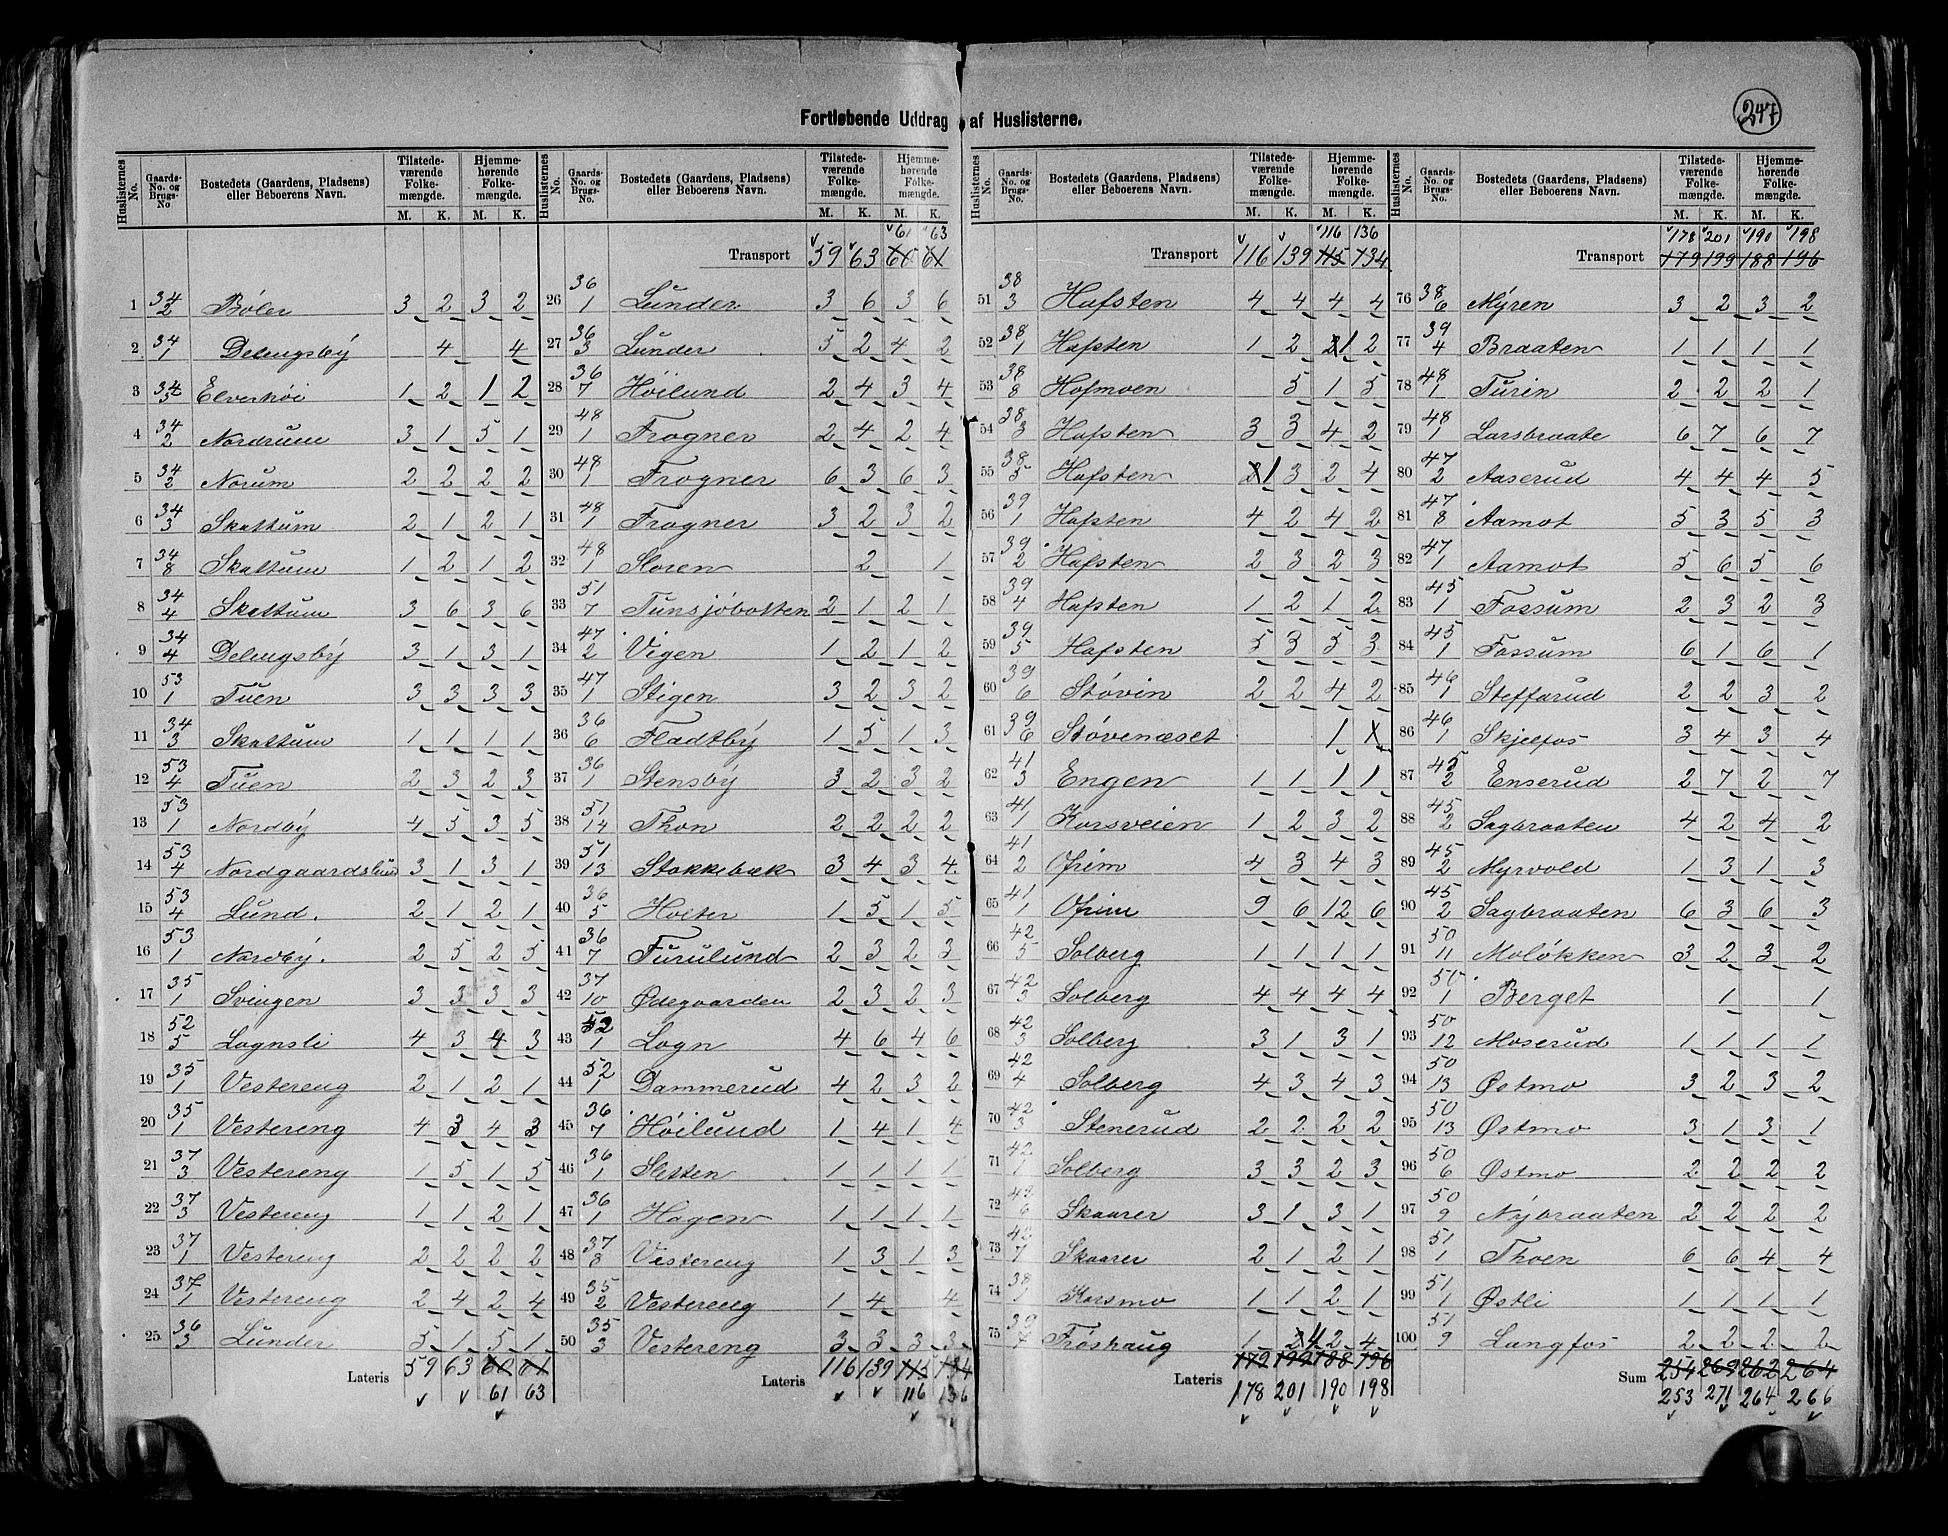 247
Fortløbende Uddrag af Huslisterne.
Huslisternes No. | Gaards-No. og Brugs-No | Bostedets (Gaardens, Pladsens) eller Beboerens Navn. | Tilstedeværende Folkemængde. M. K. | Hjemmehørende Folkemængde. M. K.
1 34/2 Böler 3 2 3 2
2 34/1 Delingsby 4 4
3 34/5 Elverhöi 1 2 1 2
4 34/2 Nordrum 3 1 5 1
5 34/2 Norum 2 2 2 2
6 34/3 Skattum 2 1 2 1
7 34/8 Skattum 1 2 1 2
8 34/4 Skattum 3 6 3 6
9 34/4 Delingsby 3 1 3 1
10 53/1 Tuen 3 3 3 3
11 34/3 Skattum 1 1 1 1
12 53/4 Tuen 2 3 2 3
13 53/1 Nordby 4 5 3 5
14 53/4 Nordgaardslund 3 1 3 1
15 53/4 Lund. 2 1 2 1
16 53/1 Nordby. 2 5 2 5
17 35/1 Svingen 3 3 3 3
18 52/5 Lognsli 4 3 4 3
19 35/1 Vestereng 2 1 2 1
20 35/1 Vestereng 4 3 4 3
21 37/3 Vestereng 1 5 1 5
22 37/3 Vestereng 1 1 2 1
23 37/1 Vestereng 2 2 2 2
24 37/1 Vestereng 2 4 2 4
25 36/3 Lunder 5 1 5 1
Lateris 59 63 60 61
61 63
Huslisternes No. | Gaards-No. og Brugs-No. | Bostedets (Gaardens, Pladsens) eller Beboerens Navn. | Tilstedeværende Folkemængde. M. K. | Hjemmehørende Folkemængde. M. K.
61 63
Transport 59 63 60 61
26 36/1 Lunder 3 6 3 6
27 36/3 Lunder 5 2 4 2
28 36/7 Höilund 2 4 3 4
29 48/1 Frogner 2 4 2 4
30 48/1 Frogner 6 3 6 3
31 48/1 Frogner 3 2 3 2
32 48/1 Sloren 2 1
33 51/7 Tunsjöbotten 2 1 2 1
34 47/2 Vigen 1 2 1 2
35 47/1 Stigen 3 2 3 2
36 36/6 Fladtby 1 5 1 3
37 36/1 Stensby 3 2 3 2
38 51/14 Thon 2 2 2 2
39 51/13 Stokkebæk 3 4 3 4
40 36/5 Holter 1 5 1 5
41 36/7 Furulund 2 3 2 3
42 37/10 Ødegaarden 2 3 2 3
43 52/1 Logn 4 6 4 6
44 52/1 Dammerud 4 2 3 2
45 36/7 Höilund 1 4 1 4
46 36/1 Sletten 1 1 1 1
47 36/1 Hagen 1 1 1 1
48 37/8 Vestereng 1 3 1 3
49 35/2 Vestereng 1 4 4
50 35/3 Vestereng 3 3 3 3
Lateris 116 139 115 134
116 136
Huslisternes No. | Gaards-No. og Brugs-No. | Bostedets (Gaardens, Pladsens) eller Beboerens Navn. | Tilstedeværende Folkemængde. M. K. | Hjemmehørende Folkemængde. M. K.
116 136
Transport 116 139 115 134
51 38/3 Hafsten 4 4 4 4
52 38/1 Hafsten 1 2 1 2
53 38/8 Hofmoen 5 1 5
54 38/3 Hafsten 3 3 4 2
55 38/5 Hafsten 1 3 2 4
56 39/1 Hafsten 4 2 4 2
57 39/2 Hafsten 2 3 2 3
58 39/4 Hafsten 1 2 1 2
59 39/5 Hafsten 5 3 5 3
60 39/6 Stövin 2 2 4 2
61 39/6 Stövenæset 1
62 41/3 Engen 1 1 1 1
63 41/1 Korsveien 1 2 3 2
64 41/2 Ofrim 4 3 4 3
65 41/1 Ofrim 9 6 12 6
66 42/5 Solberg 1 1 1 1
67 42/3 Solberg 4 4 4 4
68 42/3 Solberg 3 1 3 1
69 42/4 Solberg 4 3 4 3
70 42/3 Stenerud 2 2 2 2
71 42/1 Solberg 3 3 2 3
72 42/6 Skaarer 3 1 3 1
73 42/7 Skaarer 2 1 2 1
74 38/1 Korsmo 1 1 2 1
75 39/7 Fröshaug 1 4 2 4
Lateris 179 199 188 196
178 201 190 198
Huslisternes No. | Gaards-No. og Brugs-No. | Bostedets (Gaardens, Pladsens) eller Beboerens Navn. | Tilstedeværende Folkemængde. M. K. | Hjemmehørende Folkemængde. M. K.
178 201 190 198
Transport 179 199 188 196
76 38/6 Myren 3 2 3 2
77 39/4 Braaten 1 1 1 1
78 48/1 Turin 2 2 2 1
79 48/1 Larsbraate 6 7 6 7
80 47/2 Aaserud 4 4 4 5
81 47/8 Aamot 5 3 5 3
82 47/1 Aamot 5 6 5 6
83 45/1 Fossum 2 3 2 3
84 45/1 Fossum 6 1 6 1
85 46/1 Steffarud 2 2 3 2
86 46/1 Skjelfos 3 4 3 4
87 45/2 Enserud 2 7 2 7
88 45/2 Sagbraaten 4 2 4 2
89 45/2 Myrvold 1 3 1 3
90 45/2 Sagbraaten 6 3 6 3
91 50/11 Molökken 3 2 3 2
92 50/1 Berget 1 1
93 50/12 Moserud 1 1 1 1
94 50/13 Østmo 3 2 3 2
95 50/13 Østmo 3 1 3 1
96 50/6 Østmo 2 2 2 2
97 50/9 Nybraaten 2 2 2 2
98 51/1 Thoen 6 6 4 4
99 51/1 Østli 1 1 1 1
100 51/9 Langfos 2 2 2 2
Sum 254 269 262 264
253 271 264 266